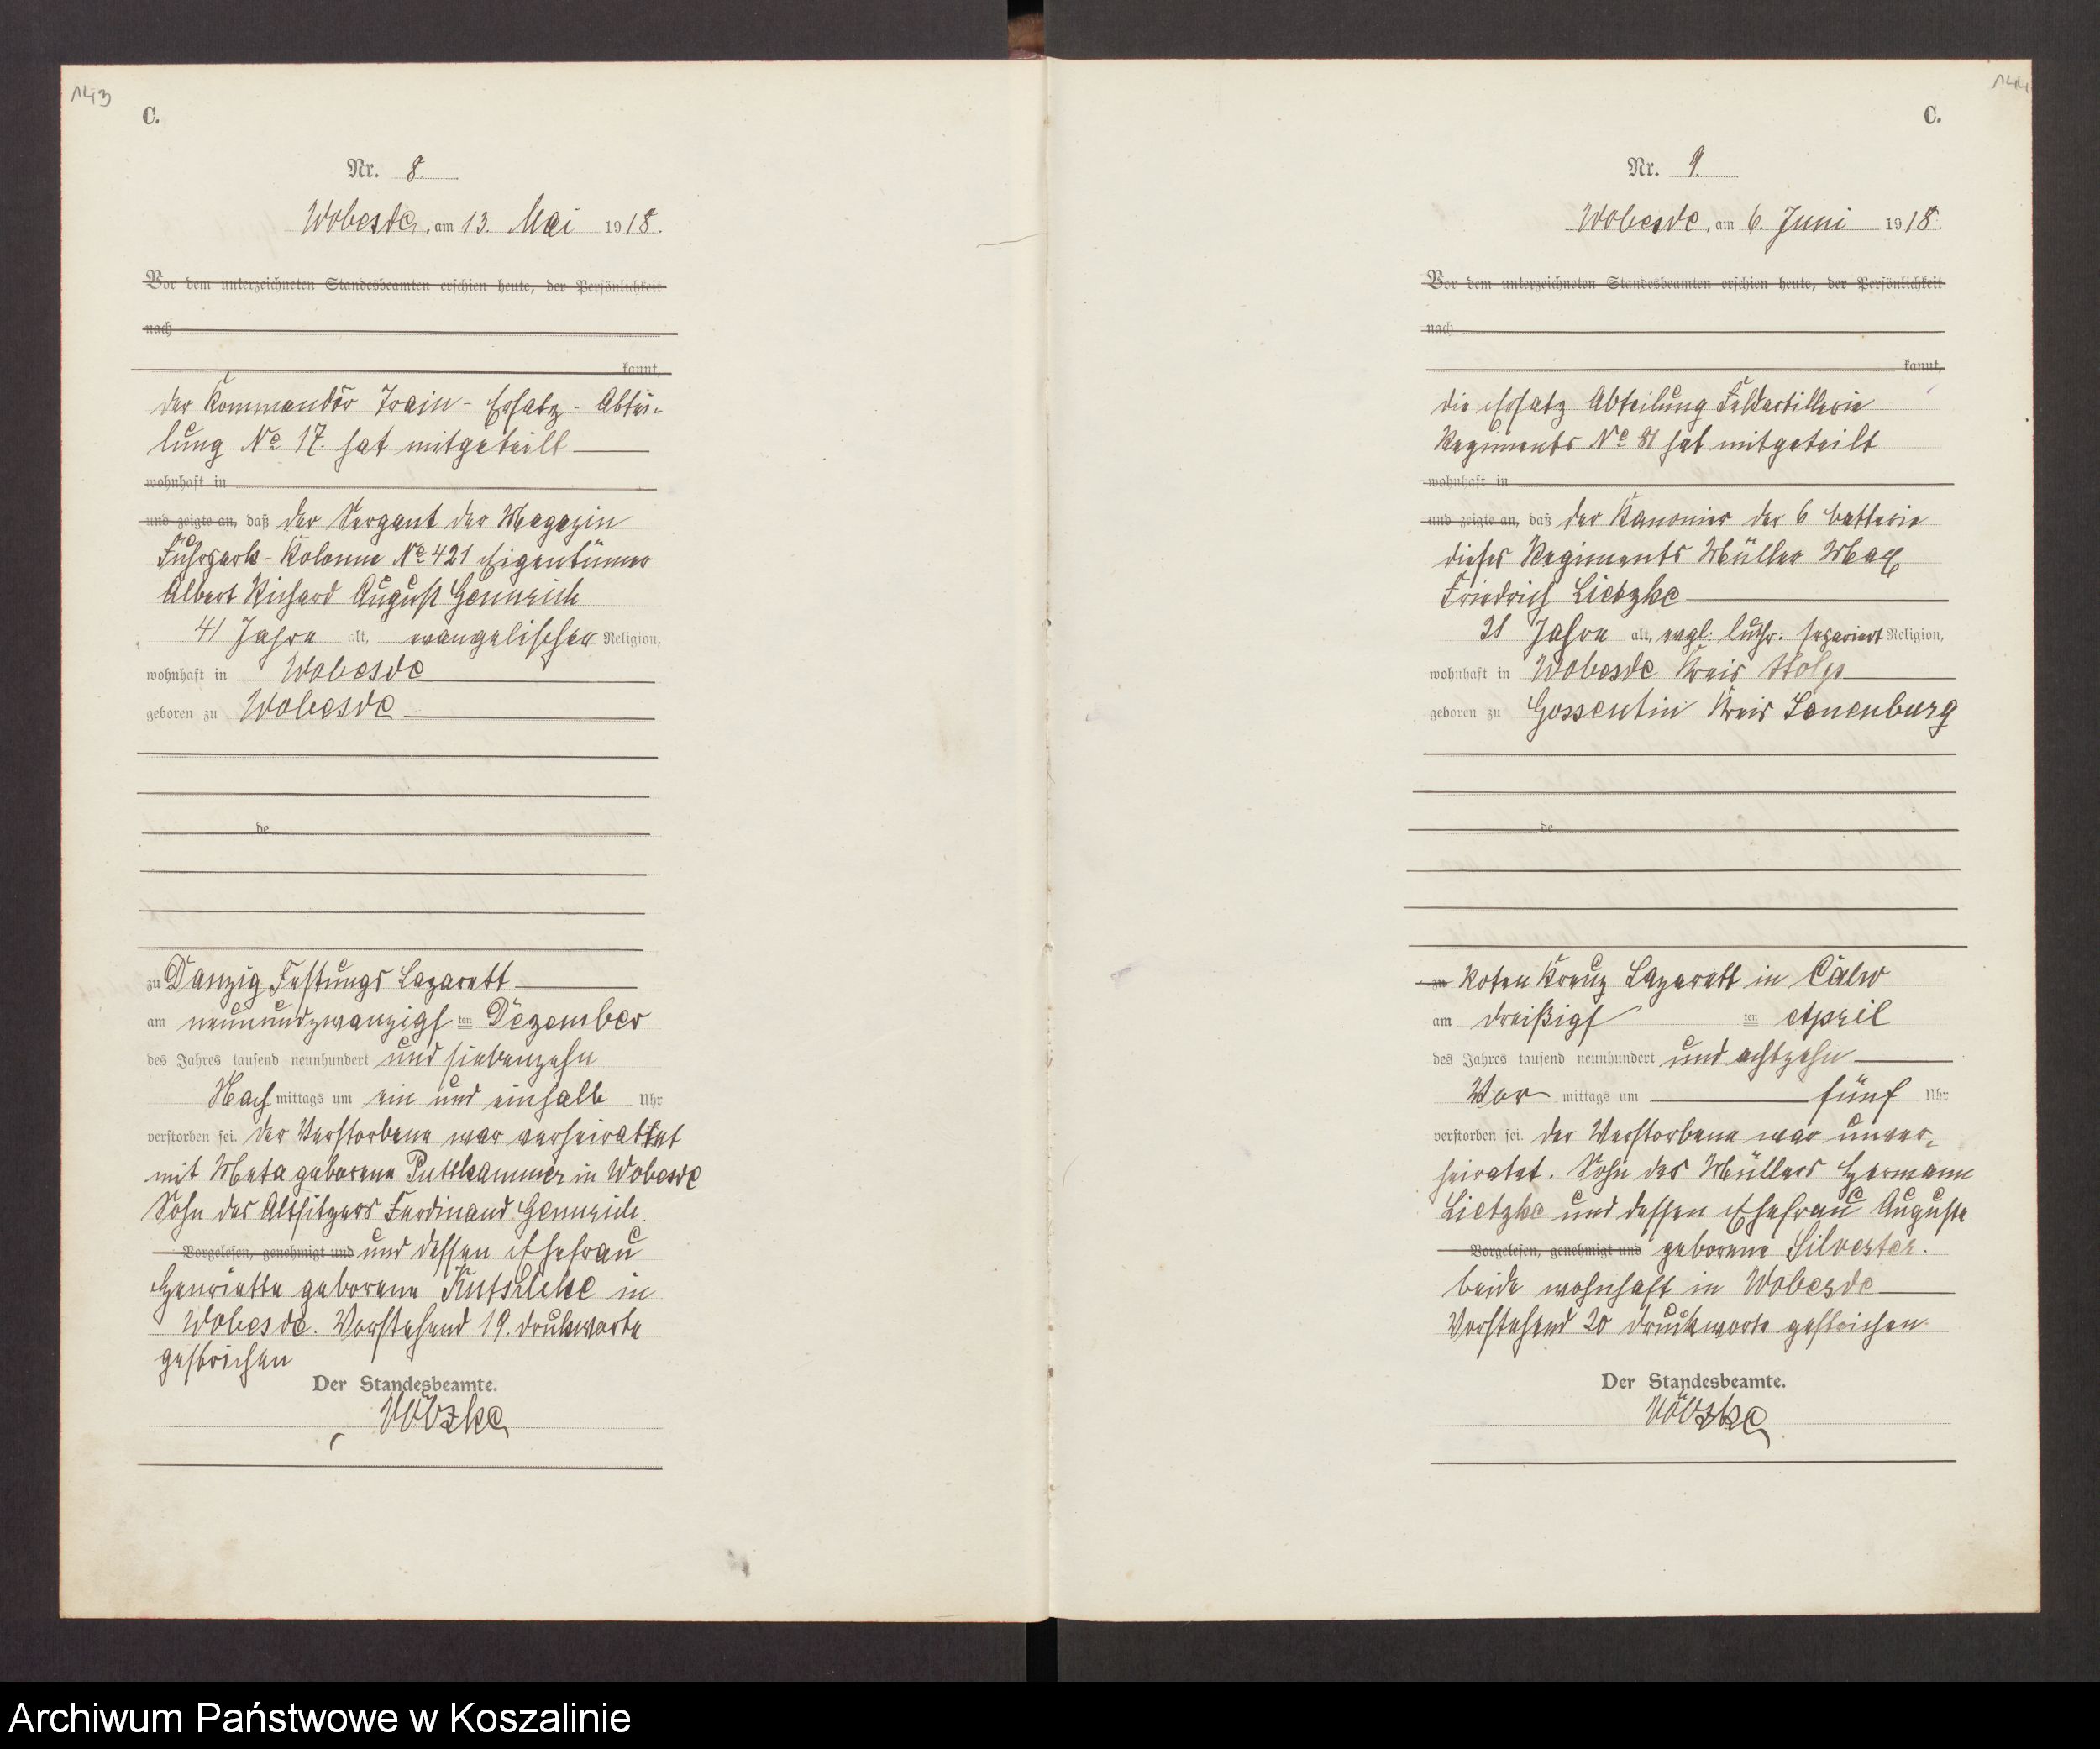 143
C.
Nr. 8.
Wobesde, am 13. Mai 1918.
Vor dem unterzeichneten Standesbeamten erschien heute, der Persönlichkeit
nach
kannt,
der Kommandör Train-Ersatz-Abtei-
lung No 17. hat mitgeteilt
wohnhaft in
und zeigte an, daß der Sergant der Magazin
Fuhrpark-Kolonne No 421 Eigentümer
Albert Richard August Gennrich
41 Jahre alt, evangelischer Religion,
wohnhaft in Wobesde
geboren zu Wobesde
de
zu Danzig Festungs Lazarett
am neunundzwanzigsten Dezember
des Jahres tausend neunhundert und siebenzehn
Nachmittags um ein und einhalb Uhr
verstorben sei. Der Verstorbene war verheirattet
mit Meta geborene Puttkammer in Wobesde
Sohn des Altsitzers Ferdinand Gennrich.
Vorgelesen, genehmigt und und dessen Ehefrau
Henriette geborene in
Wobesde. Vorstehend 19. Druckworte
gestrichen
Der Standesbeamte.
144
C.
Nr. 9.
Wobesde, am 6. Juni 1918.
Vor dem unterzeichneten Standesbeamten erschien heute, der Persönlichkeit
nach
kannt,
die Ersatz Abteilung Feldartillerie
Regiments No 81 hat mitgeteilt
wohnhaft in
und zeigte an, daß der Kanonier der 6. Batterie
dieses Regiments Müller Max
Friedrich Lietzke
21 Jahre alt, evgl: luthr: separiert Religion,
wohnhaft in Wobesde Kreis Stolp
geboren zu Gossentin Kreis Lauenburg
de
zu Roten Kreuz Lazarett in Calw
am dreißigsten April
des Jahres tausend neunhundert und achtzehn
Vor mittags um fünf Uhr
verstorben sei. Der Verstorbene war unver-
heiratet. Sohn des Müllers Hermann
Lietzke und dessen Ehefrau Auguste
Vorgelesen, genehmigt und geborene Silvester.
beide wohnhaft in Wobesde
Vorstehend 20 Druckworte gestrichen.
Der Standesbeamte.
Archiwum Państwowe w Koszalinie